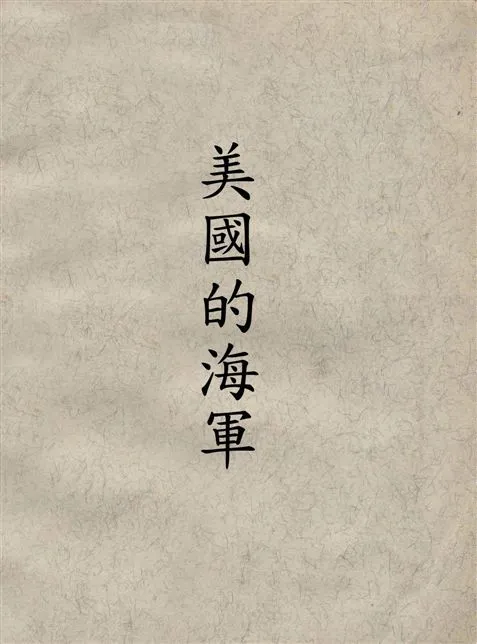 美國的海軍